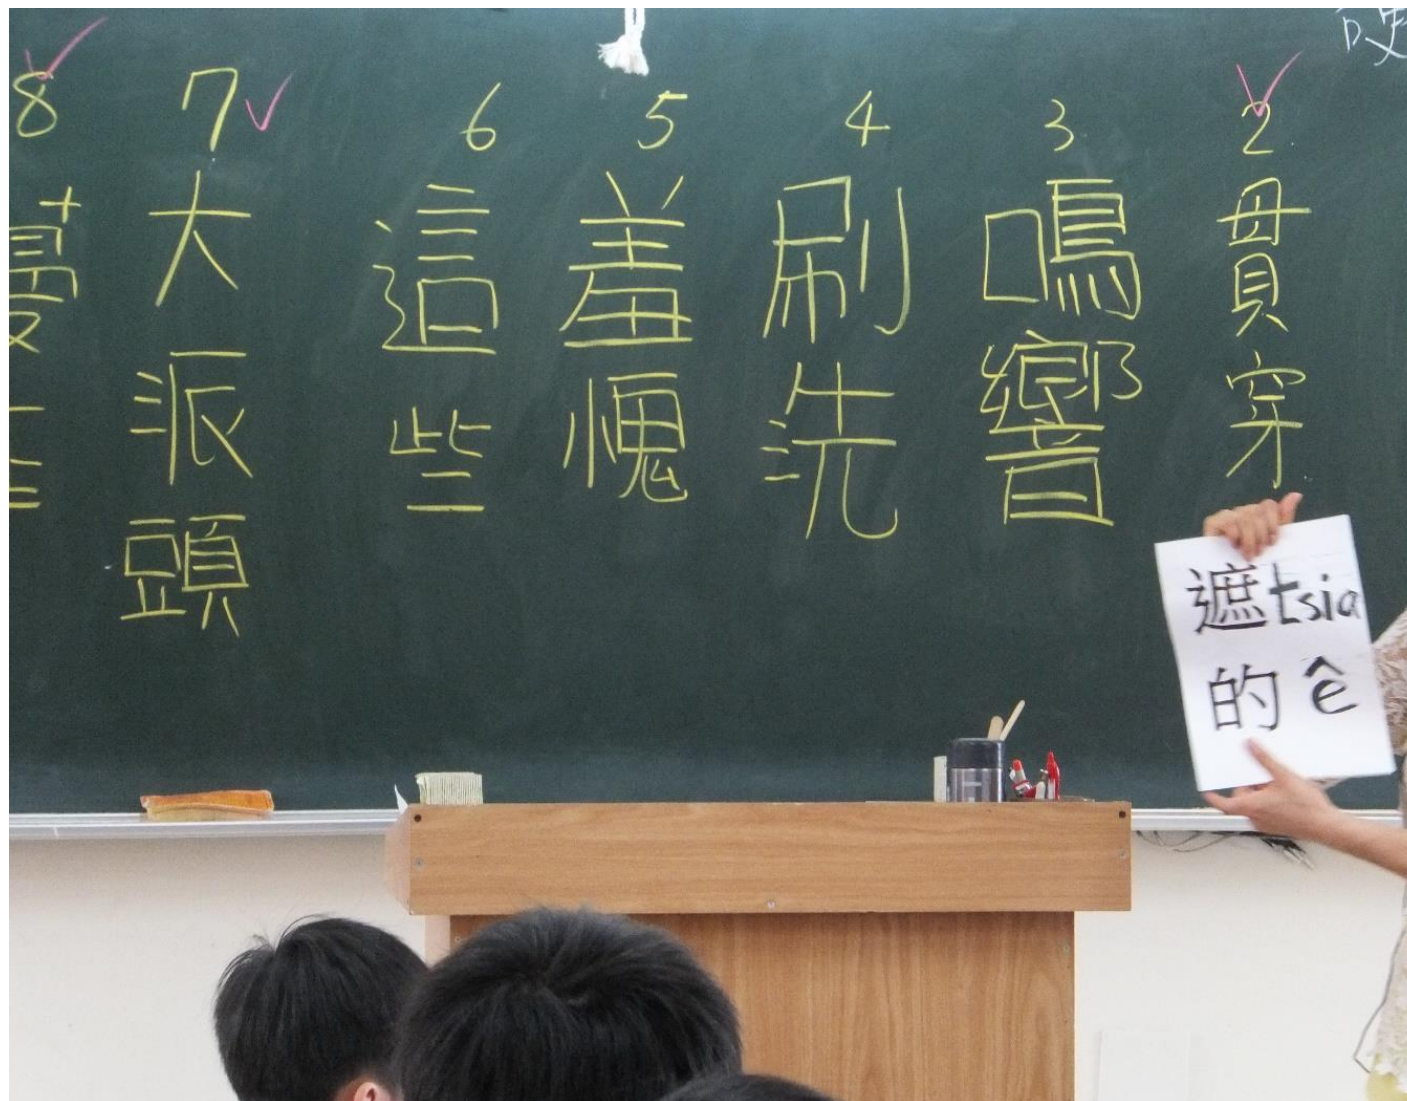 2
貫穿
3
鳴響
4
刷洗
5
羞愧
6
這些
7
大派頭
8
遮tsia
的ê